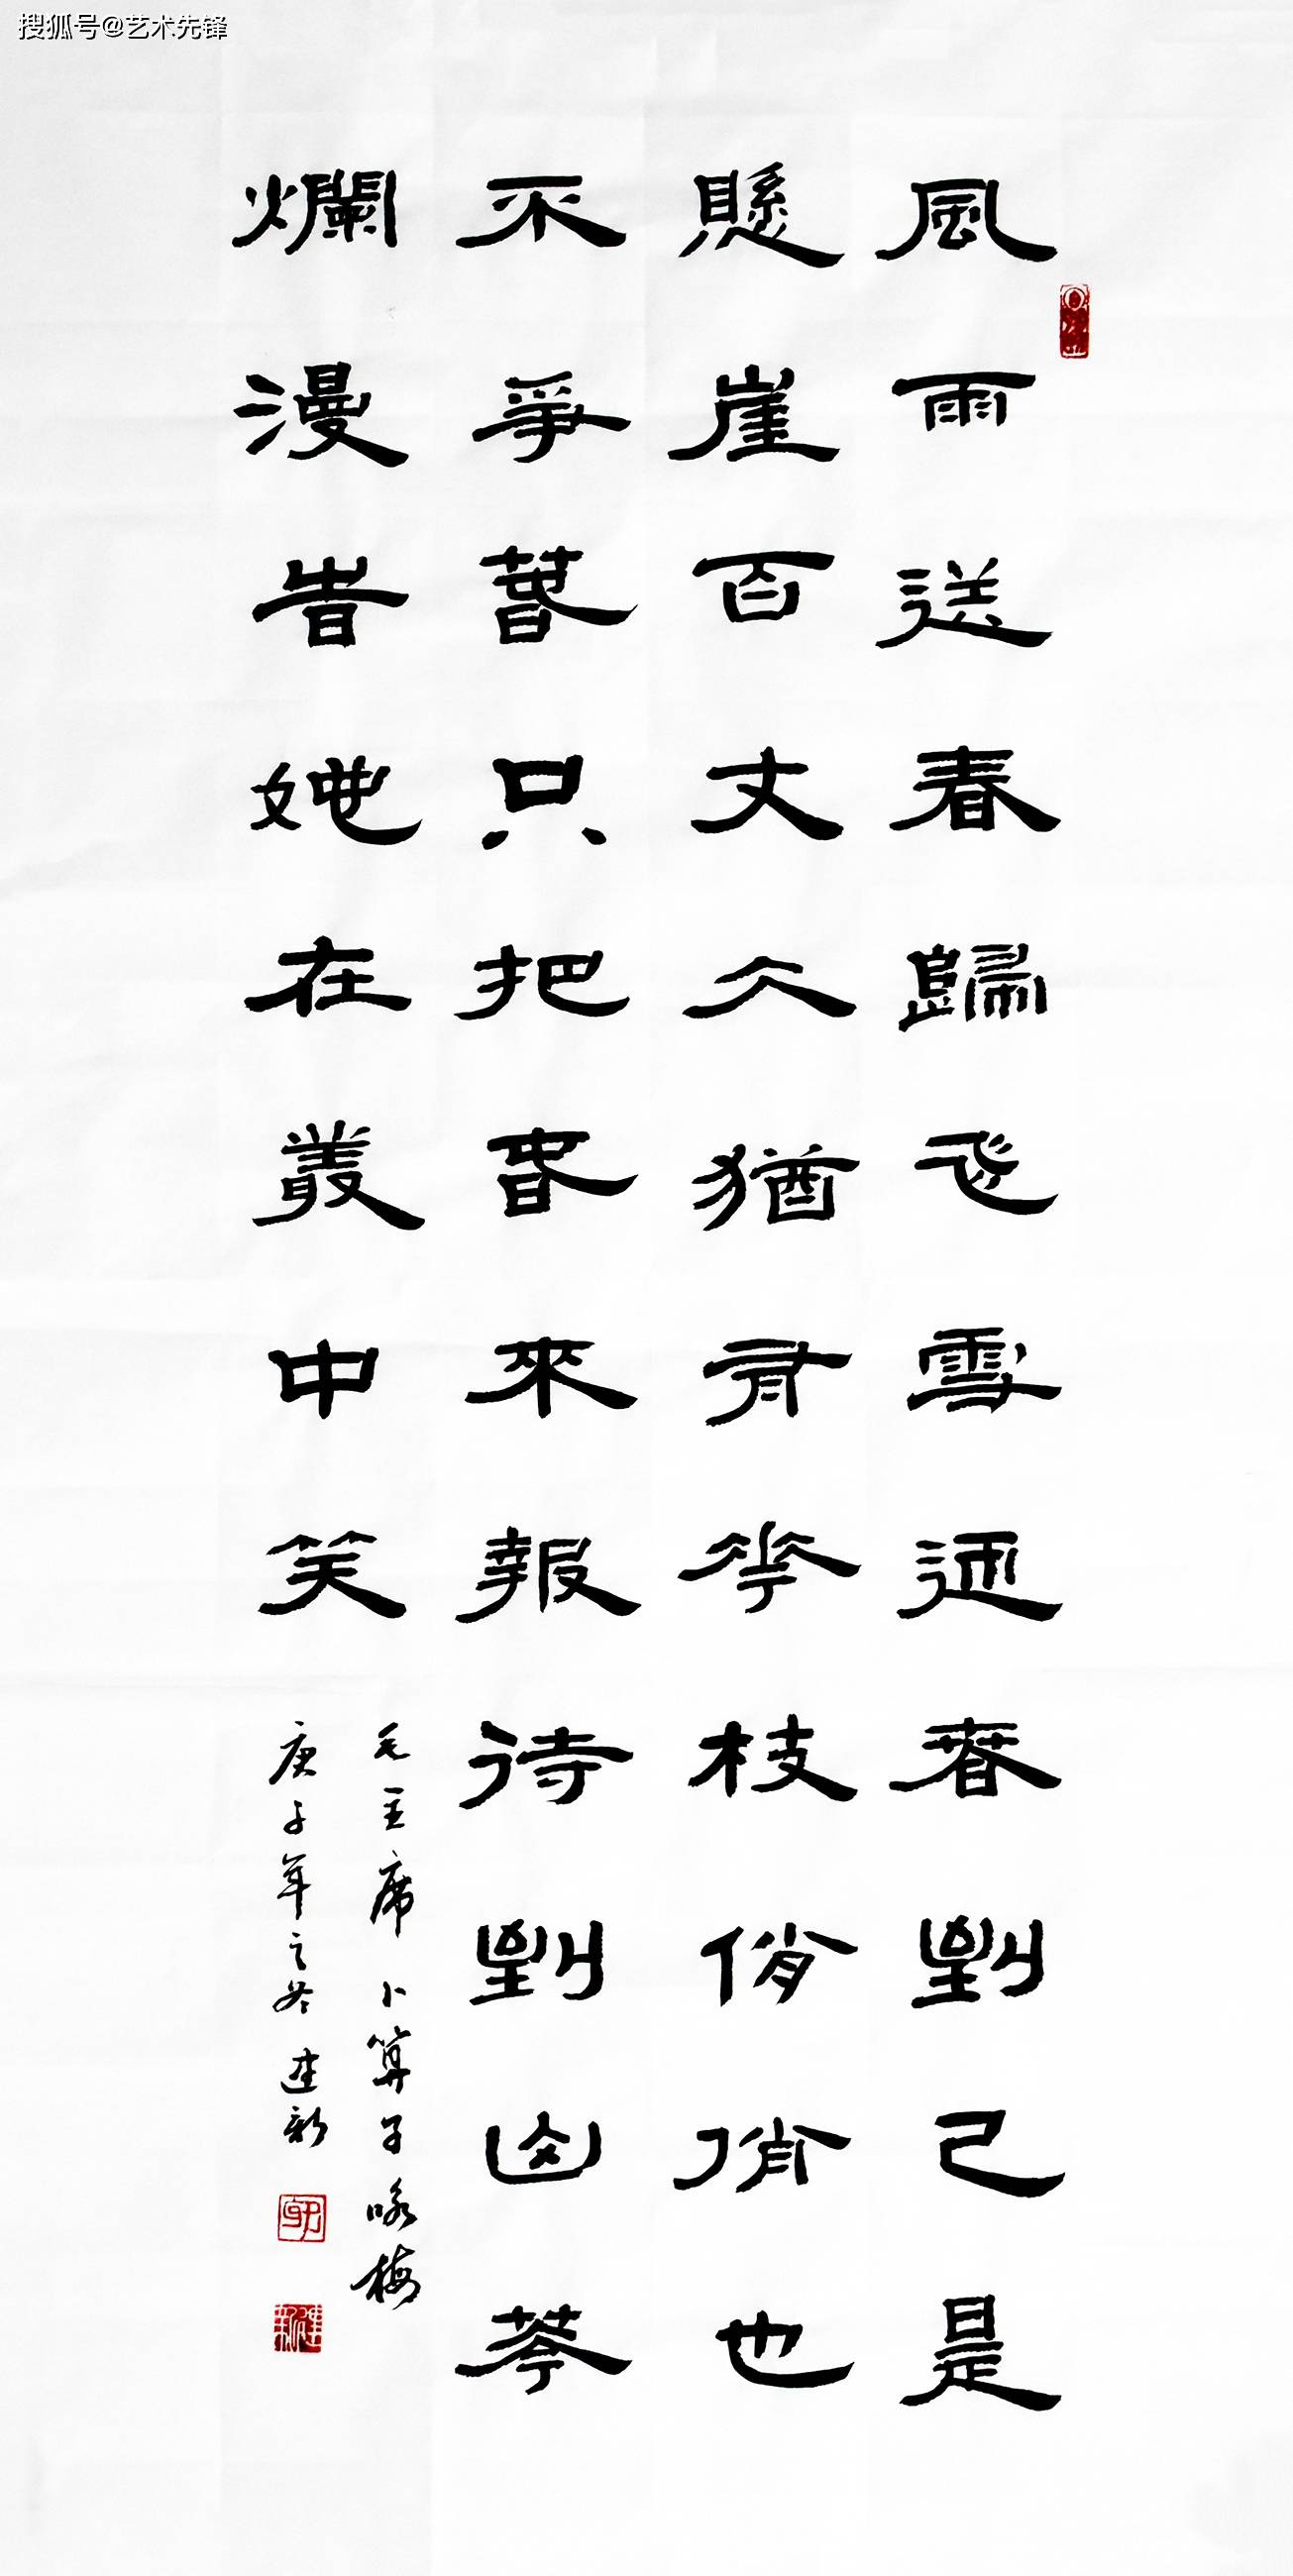 搜狐号@艺术先锋
風雨送春歸飛雪迎春到已是
懸崖百丈冰猶有花枝俏俏也
不爭春只把春來報待到山花
爛漫時她在叢中笑
毛主席卜算子咏梅
庚子年之冬建新